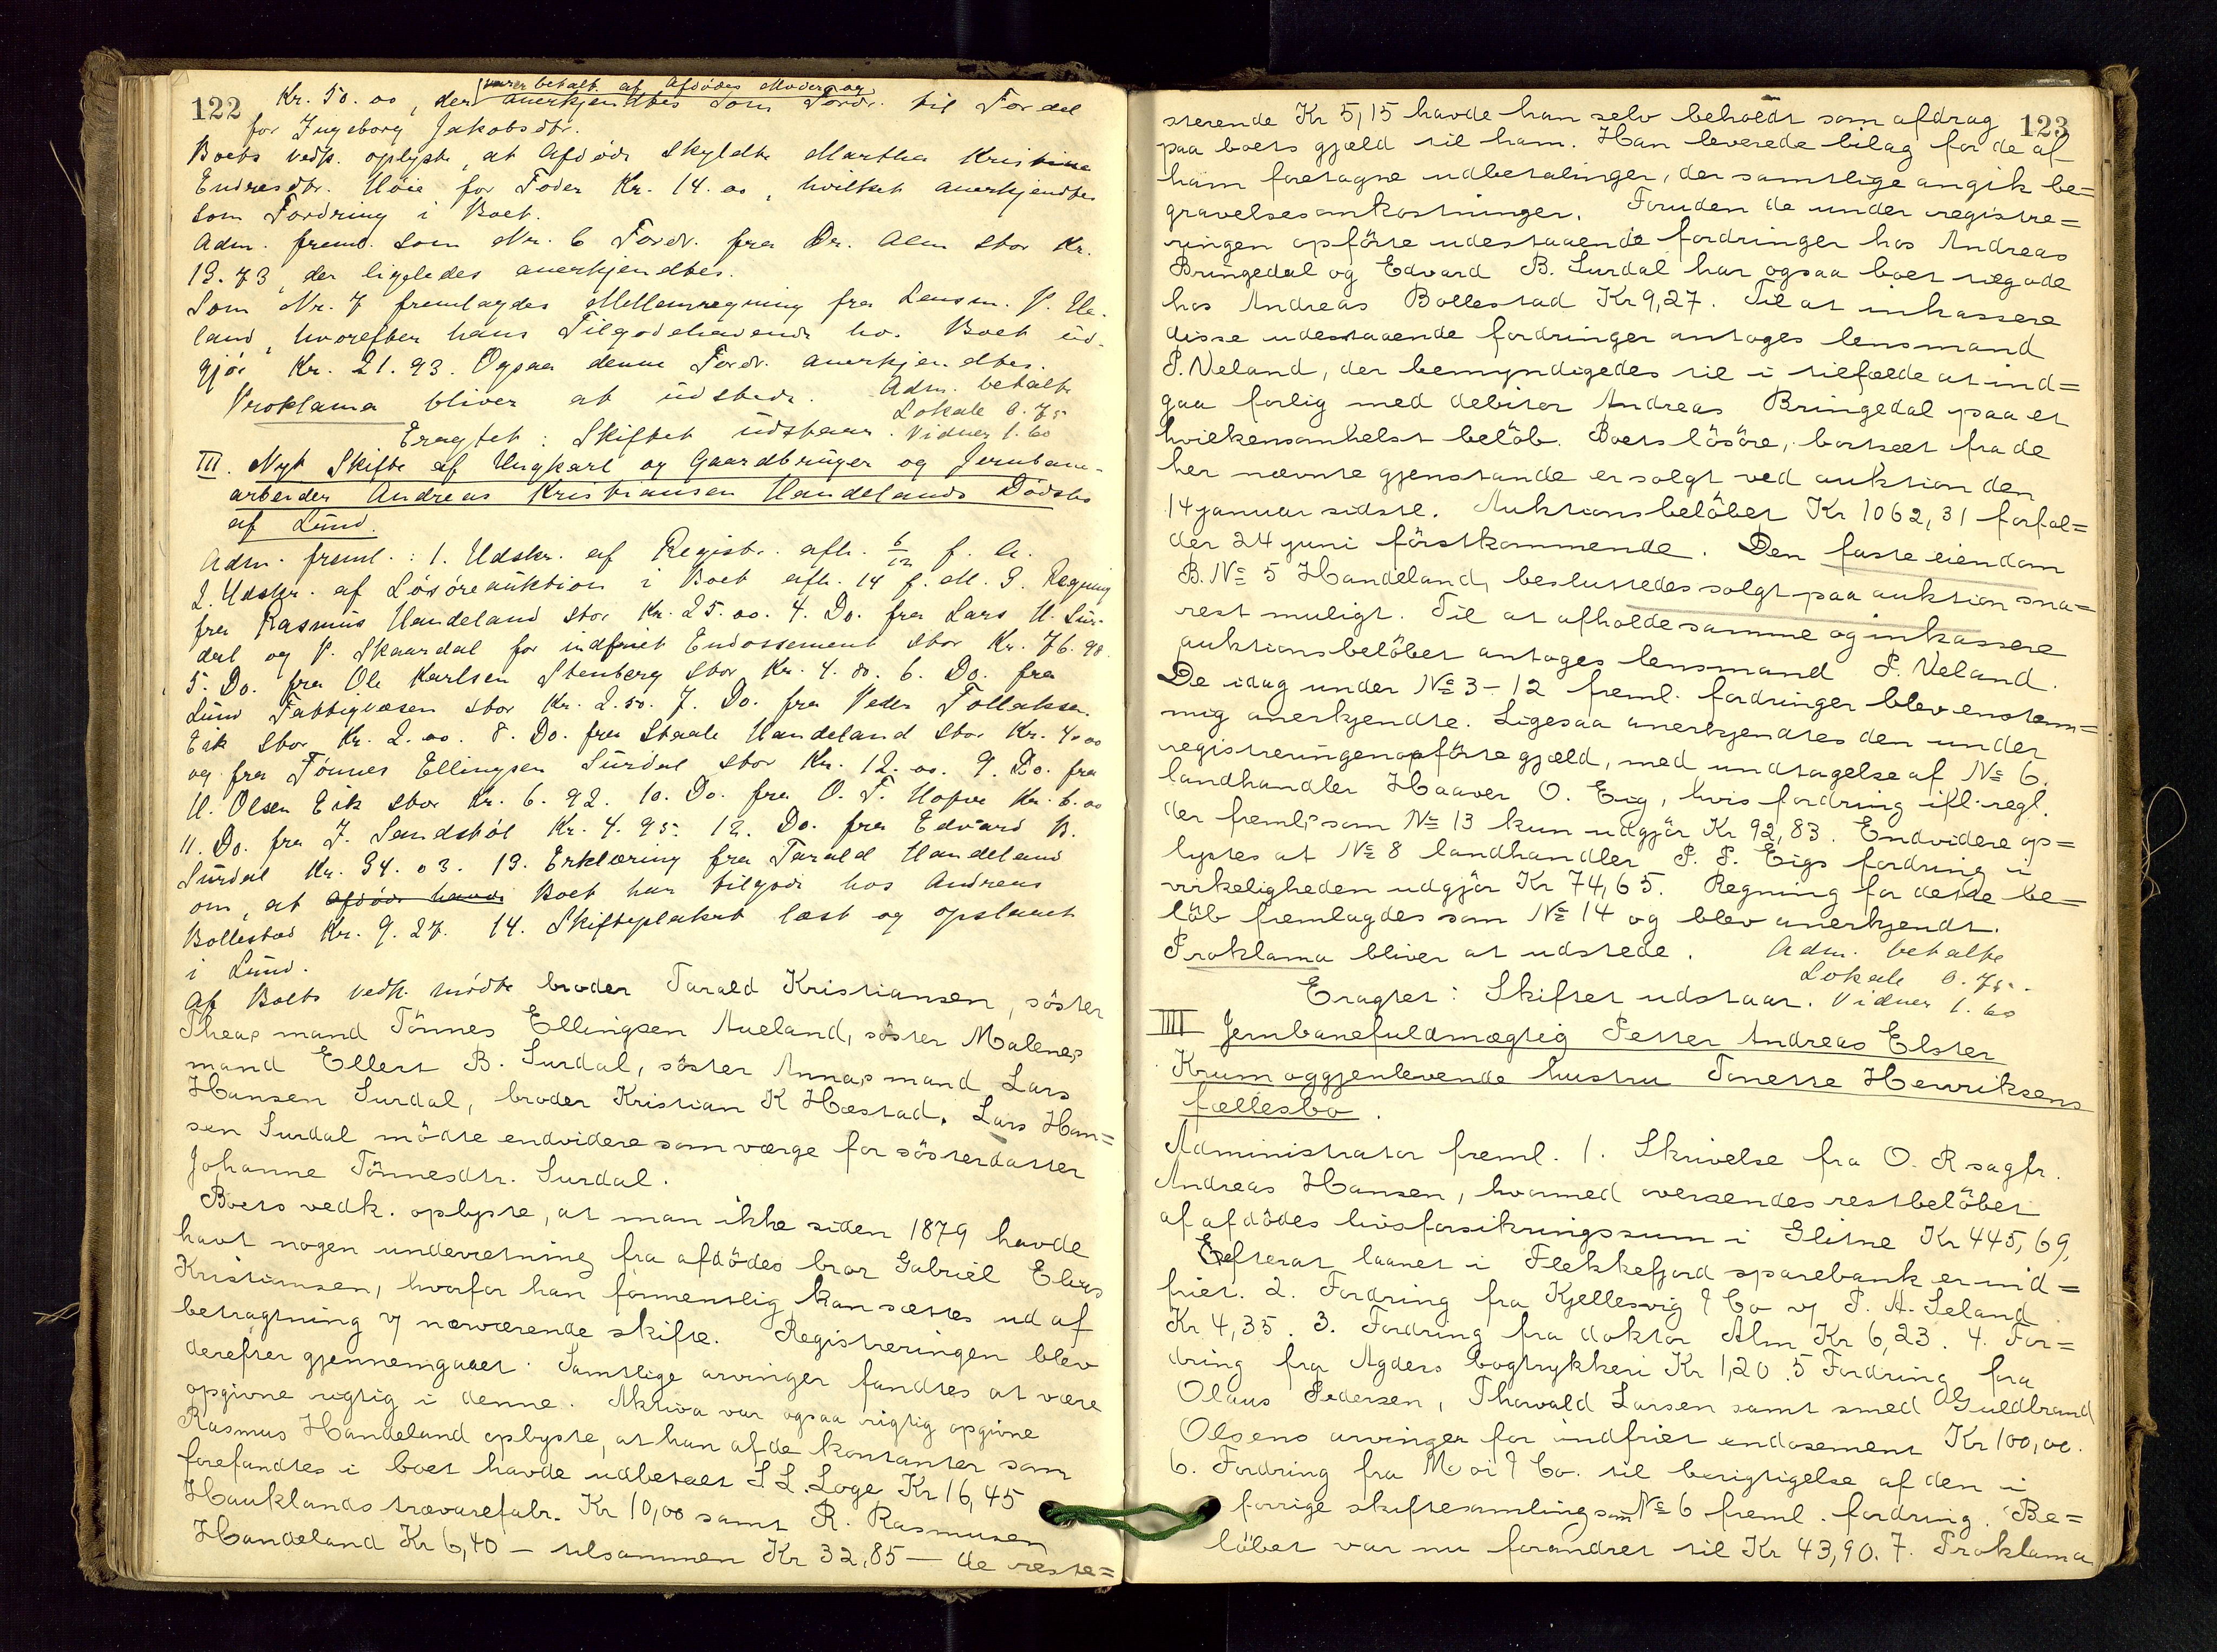 122
varer betalt af Afdödes Moder og
Kr. 50.00, der anerkjendtes som Fordr. til Fordel
for Ingeborg Jakobsdtr.
Boets vedk. oplyste, at Afdöde skyldte Martha Kristine
Endresdtr. Höie for Foder Kr. 14.00, hvilket anerkjendtes
som Fordring i Boet.
Adm. freml. som Nr. 6 Fordr. fra Dr. Alm stor Kr.
19.73, der ligeledes anerkjendtes.
Som Nr. 7 fremlagdes Mellemregning fra Lensm. P. Ve-
land, hvorefter hans Tilgodehavende ho. Boet ud-
gjör Kr. 21.93. Ogsaa denne Fordr. anerkjendtes.
Proklama bliver at udstede. Adm. betalte
Lokale 0.75
Eragtet: Skiftet udstaar. Vidner 1.60
III. Nyt Skifte af Ungkarl og Gaardbruger og Jernbane-
arbeider Andreas Kristiansen Handelands Dödsbo
af Lund.
Adm. freml.: 1. Udskr. af Registr. afh. 6/12 f. A.
2. Udskr. af Lösöreauktion i Boet afh. 14 f. M. 3. Regning
fra Rasmus Handeland stor Kr. 25.00. 4. Do. fra Lars H. Sur-
dal og P. Skaardal for indfriet Endossement stor Kr. 76.90.
5. Do. fra Ole Karlsen Stenberg stor Kr. 4.80. 6. Do. fra
Lund Fattigvæsen stor Kr. 2.50. 7. Do. fra Peder Tollaksen
Eik stor Kr. 2.00. 8. Do. fra Staale Handeland stor Kr. 4.00
og fra Tönnes Ellingsen Surdal stor Kr. 12.00. 9. Do. fra
H. Olsen Eik stor Kr. 6.92. 10. Do. fra O. T. Kr. 6.00
11. Do. fra J. Sandstöl Kr. 4.95. 12. Do. fra Edvard B.
Surdal Kr. 34.03. 13. Erklæring fra Tarald Handeland
om, at afdöde havde Boet har tilgode hos Andreas
Bollestad Kr. 9.27. 14. Skifteplakat læst og opslaaet
i Lund.
Af Boets vedk. mödte broder Tarald Kristiansen, söster
Theas mand Tönnes Ellingsen Aueland, söster Malenes
mand Ellert B. Surdal, söster Annas mand Lars
Hansen Surdal, broder Kristian K Hæstad. Lars Han=
sen Surdal mödte endvidere som værge for sösterdatter
Johanne Tönnesdtr. Surdal.
Boets vedk. oplyste, at man ikke siden 1879 havde
havt nogen underretning fra afdödes bror Gabriel Elias
Kristiansen, hvorfor han formentlig kan sættes ud af
betragtning v/ nærværende skifte. Registreringen blev
derefter gjennemgaaet. Samtlige arvinger fandtes at være
opgivne rigtig i denne. Aktiva var ogsaa rigtig opgivne
Rasmus Handeland oplyste, at han af de kontanter som
forefandtes i boet havde udbetalt S L. Loge Kr 16,45
Hauklands trævarefabr. Kr 10,00 samt R. Rasmusen
Handeland Kr 6,40 — tilsammen Kr 32,85 — de reste=
123
sterende Kr 5,15 havde han selv beholdt som afdrag
paa boets gjæld til ham. Han leverede bilag for de af
ham foretagne udbetalinger, der samtlige angik be=
gravelsesomkostninger. Foruden de under registre=
ringen opförte udestaaende fordringer hos Andreas
Bringedal og Edvard B. Surdal har ogsaa boet tilgode
hos Andreas Bollestad Kr 9,27. Til at inkassere
disse udestaaende fordringer antoges lensmand
P. Veland, der bemyndigedes til i tilfælde at ind=
gaa forlig med debitor Andreas Bringedal paa et
hvilkensomhelst belöb. Boets lösöre, bortseet fra de
her nævnte gjenstande er solgt ved auktion den
14 januar sidstl. Auktionsbelöbet Kr 1062,31 forfal=
der 24 juni förstkommende. Den faste eiendom
B. № 5 Handeland, besluttedes solgt paa auktion sna=
rest muligt. Til at afholde samme og inkassere
auktionsbelöbet antoges lensmand P. Veland.
De idag under № 3–12 freml. fordringer blev enstem=
mig anerkjendte. Ligesaa anerkjendtes den under
registreringen opförte gjæld, med undtagelse af № 6.
landhandler Haaver O. Eig, hvis fordring ifl. regl.
der freml. som № 13 kun udgjör Kr 92,83. Endvidere op=
lystes at № 8 landhandler P. P. Eigs fordring i
virkeligheden udgjör Kr 74,65. Regning for dette be=
löb fremlagdes som № 14 og blev anerkjendt.
Proklama bliver at udstede. Adm. betalte
Lokale 0.75.
Eragtet: Skiftet udstaar. Vidner 1.60
IIII Jernbanefuldmægtig Petter Andreas Elster
Krum og gjenlevende hustru Tonette Henriksens
fællesbo.
Administrator freml. 1. Skrivelse fra O. R sagfr.
Andreas Hansen, hvormed oversendes restbelöbet
af afdödes livsforsikringssum i Glitne Kr 445,69,
Efterat laanet i Flekkefjord sparebank er ind=
friet. 2. Fordring fra Kjellesvig & Co v/ P. A. Seland
Kr 4,35. 3. Fordring fra doktor Alm Kr 6,23. 4. For=
dring fra Agders bogtrykkeri Kr 1,20. 5 Fordring fra
Olaus Pedersen, Thorvald Larsen samt smed Guldbrand
Olsens arvinger for indfriet endosement Kr 100,00.
6. Fordring fra Moi & Co. til berigtigelse af den i
forrige skiftesamling som № 6 freml. fordring. Be=
löbet var nu forandret til Kr 43,90. 7. Proklama